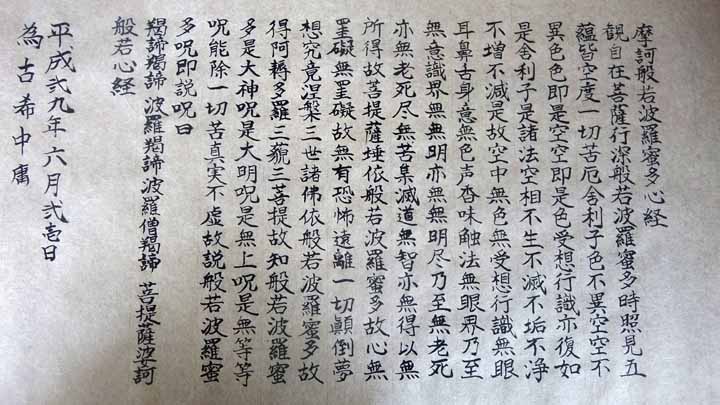 摩訶般若波羅蜜多心経
観自在菩薩行深般若波羅蜜多時照見五
蘊皆空度一切苦厄舎利子色不異空空不
異色色即是空空即是色受想行識亦復如
是舎利子是諸法空相不生不滅不垢不浄
不増不減是故空中無色無受想行識無眼
耳鼻舌身意無色声香味触法無眼界乃至
無意識界無無明亦無無明尽乃至無老死
亦無老死尽無苦集滅道無智亦無得以無
所得故菩提薩埵依般若波羅蜜多故心無
罣礙無罣礙故無有恐怖遠離一切顛倒夢
想究竟涅槃三世諸佛依般若波羅蜜多故
得阿耨多羅三藐三菩提故知般若波羅蜜
多是大神呪是大明呪是無上呪是無等等
呪能除一切苦真実不虚故説般若波羅蜜
多呪即説呪曰
羯諦羯諦 波羅羯諦 波羅僧羯諦 菩提薩婆訶
般若心経
平成弐九年六月弐壱日
為古希中庸